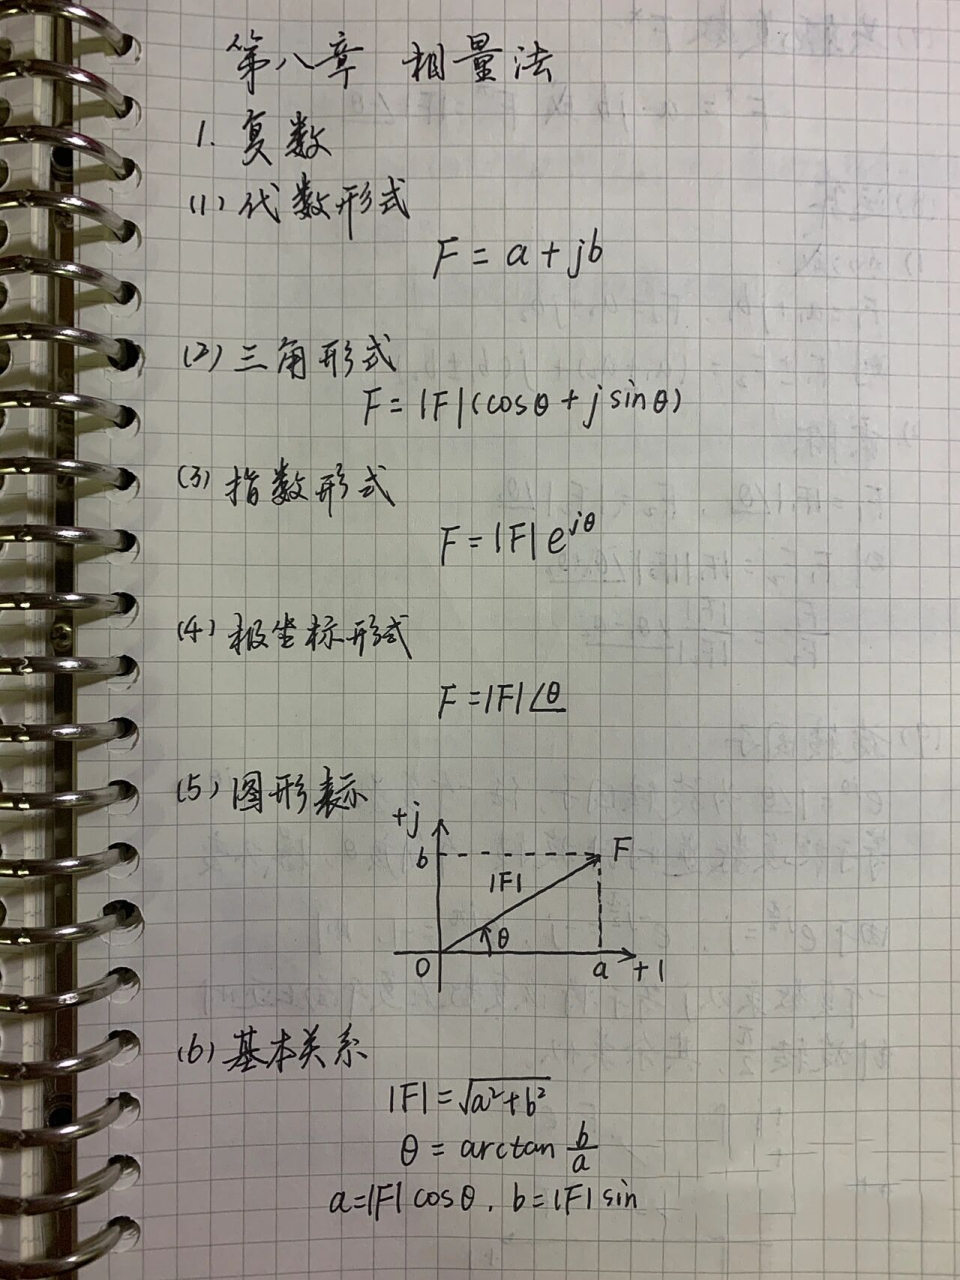 第八章 相量法
1. 复数
(1) 代数形式
F = a + jb
(2) 三角形式
F = |F|(cosθ + j sinθ)
(3) 指数形式
F = |F| e^{jθ}
(4) 极坐标形式
F = |F|∠θ
(5) 图形表示
+j
b
F
|F|
θ
0
a
+1
(6) 基本关系
|F| = √(a²+b²)
θ = arctan b/a
a=|F| cosθ. b=|F| sin